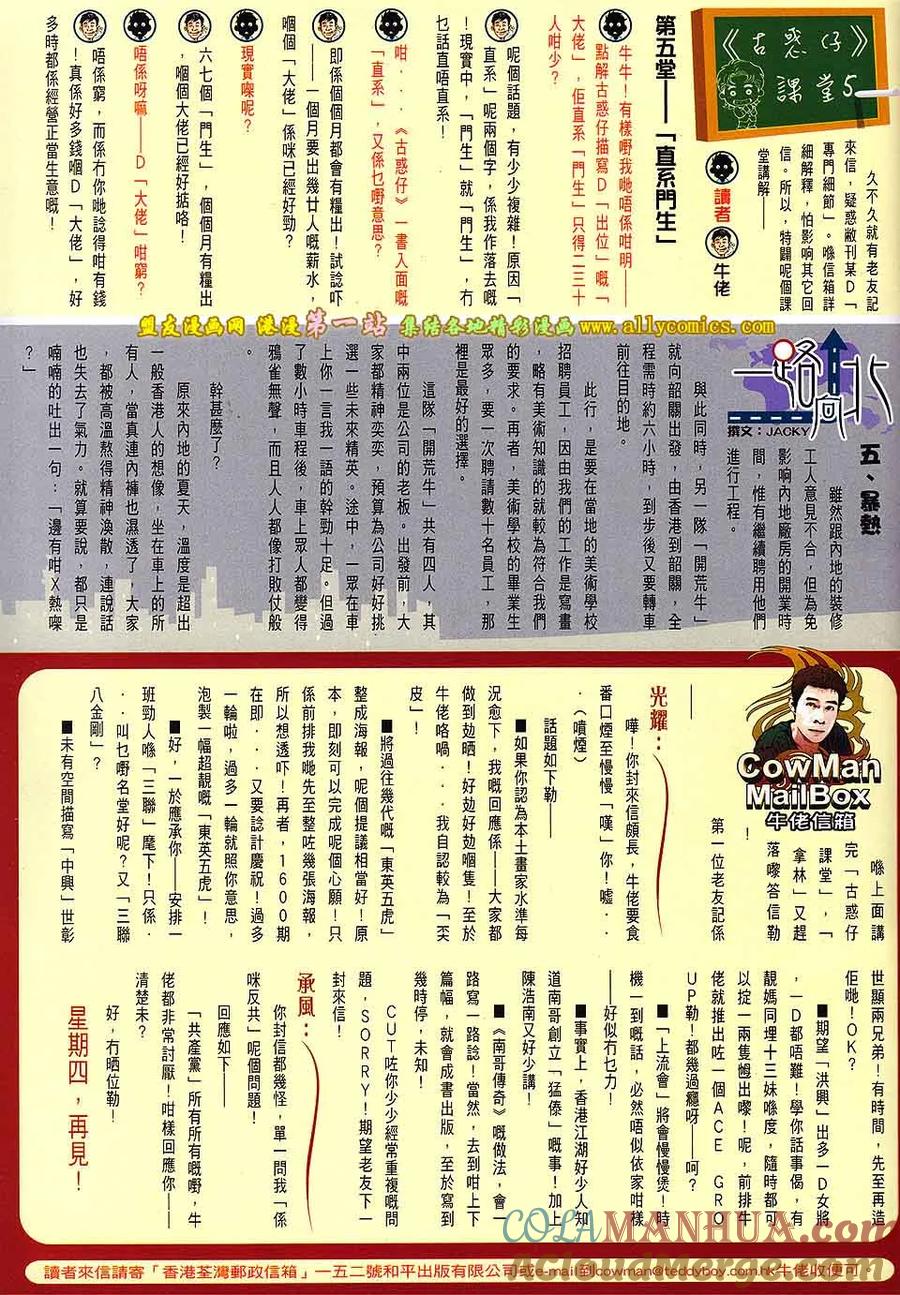 《古惑仔》
課堂5
久不久就有老友記
來信，疑惑敝刊某D「
專門細節」。喺信箱詳
細解釋，怕影响其它回
信。所以，特闢呢個課
堂講解——
讀者
牛佬
第五堂——「直系門生」
牛牛！有樣嘢我哋唔係咁明——
點解古惑仔描寫D「出位」嘅「
大佬」，佢直系「門生」只得二三十
人咁少？
呢個話題，有少少複雜！原因「
直系」呢兩個字，係我作落去嘅
！現實中，「門生」就「門生」，冇
乜話直唔直系！
咁．．．《古惑仔》一書入面嘅
「直系」，又係乜嘢意思？
即係個個月都會有糧出！試諗吓
——一個月要出幾廿人嘅薪水，
嗰個「大佬」係咪已經好勁？
現實㗎呢？
六七個「門生」，個個月有糧出
，嗰個大佬已經好掂咯！
唔係呀嘛——D「大佬」咁窮？
唔係窮，而係冇你哋諗得咁有錢
！真係好多錢嗰D「大佬」，好
多時都係經營正當生意嘅！
盟友漫画网 港漫第一站 集结各地精彩漫画 www.allycomics.com
一路向北
撰文：JACKY
五、暴熱
雖然跟內地的裝修
工人意見不合，但為免
影响內地廠房的開業時
間，惟有繼續聘用他們
進行工程。
與此同時，另一隊「開荒牛」
就向韶關出發，由香港到韶關，全
程需時約六小時，到步後又要轉車
前往目的地。
此行，是要在當地的美術學校
招聘員工，因由我們的工作是寫畫
，略有美術知識的就較為符合我們
的要求。再者，美術學校的畢業生
眾多，要一次聘請數十名員工，那
裡是最好的選擇。
這隊「開荒牛」共有四人，其
中兩位是公司的老板。出發前，大
家都精神奕奕，預算為公司好好挑
選一些未來精英。途中，一眾在車
上你一言我一語的幹勁十足。但過
了數小時車程後，車上眾人都變得
鴉雀無聲，而且人人都像打敗仗般
。
幹甚麼了？
原來內地的夏天，溫度是超出
一般香港人的想像，坐在車上的所
有人，當真連內褲也濕透了，大家
，都被高溫熬得精神渙散，連說話
也失去了氣力。就算要說，都只是
喃喃的吐出一句：「邊有咁X熱㗎
？」
CowMan
MailBox
牛佬信箱
喺上面講
完「古惑仔
課堂」，「
拿林」又趕
落嚟答信勒
！
第一位老友記係
——
光耀：
嘩！你封來信頗長，牛佬要食
番口煙至慢慢「嘆」你！噓．
．（噴煙）
話題如下勒——
■如果你認為本土畫家水準每
況愈下，我嘅回應係——大家都
做到攰晒！好攰好攰嗰隻！至於
牛佬咯喎．．．我自認較為「奀
皮」！
■將過往幾代嘅「東英五虎」
整成海報，呢個提議相當好！原
本，即刻可以完成呢個心願！只
係前排我哋先至整咗幾張海報，
所以想透吓！再者，1600期
在即．．．又要諗計慶祝！過多
一輪啦，過多一輪就照你意思，
泡製一幅超靚嘅「東英五虎」！
■好，一於應承你——安排一
班勁人喺「三聯」麾下！只係．
．叫乜嘢名堂好呢？又「三聯
八金剛」？
■未有空間描寫「中興」世彰
世顯兩兄弟！有時間，先至再造
佢哋！OK？
■期望「洪興」出多一D女將
，一D都唔難！學你話事偈，有
靚媽同埋十三妹喺度，隨時都可
以掟一兩隻乸出嚟！呢，前排牛
佬就推出咗一個ACE GRO
UP勒！都幾過癮呀——呵？
■「上流會」將會慢慢煲！時
機一到嘅話，必然唔似依家咁樣
——好似冇乜力！
■事實上，香港江湖好少人知
道南哥創立「猛傢」嘅事！加上
陳浩南又好少講！
■《南哥傳奇》嘅做法，會一
路寫一路諗！當然，去到咁上下
篇幅，就會成書出版，至於寫到
幾時停，未知！
CUT咗你少少經常重複嘅問
題，SORRY！期望老友下一
封來信！
承風：
你封信都幾怪，單一問我「係
咪反共」呢個問題！
回應如下——
「共產黨」所有所有嘅嘢，牛
佬都非常討厭！咁樣回應你——
清楚未？
好，冇晒位勒！
星期四，再見！
COLAMANHUA.com
讀者來信請寄「香港荃灣郵政信箱」一五二號和平出版有限公司或e-mail到cowman@teddyboy.com.hk牛佬收便可